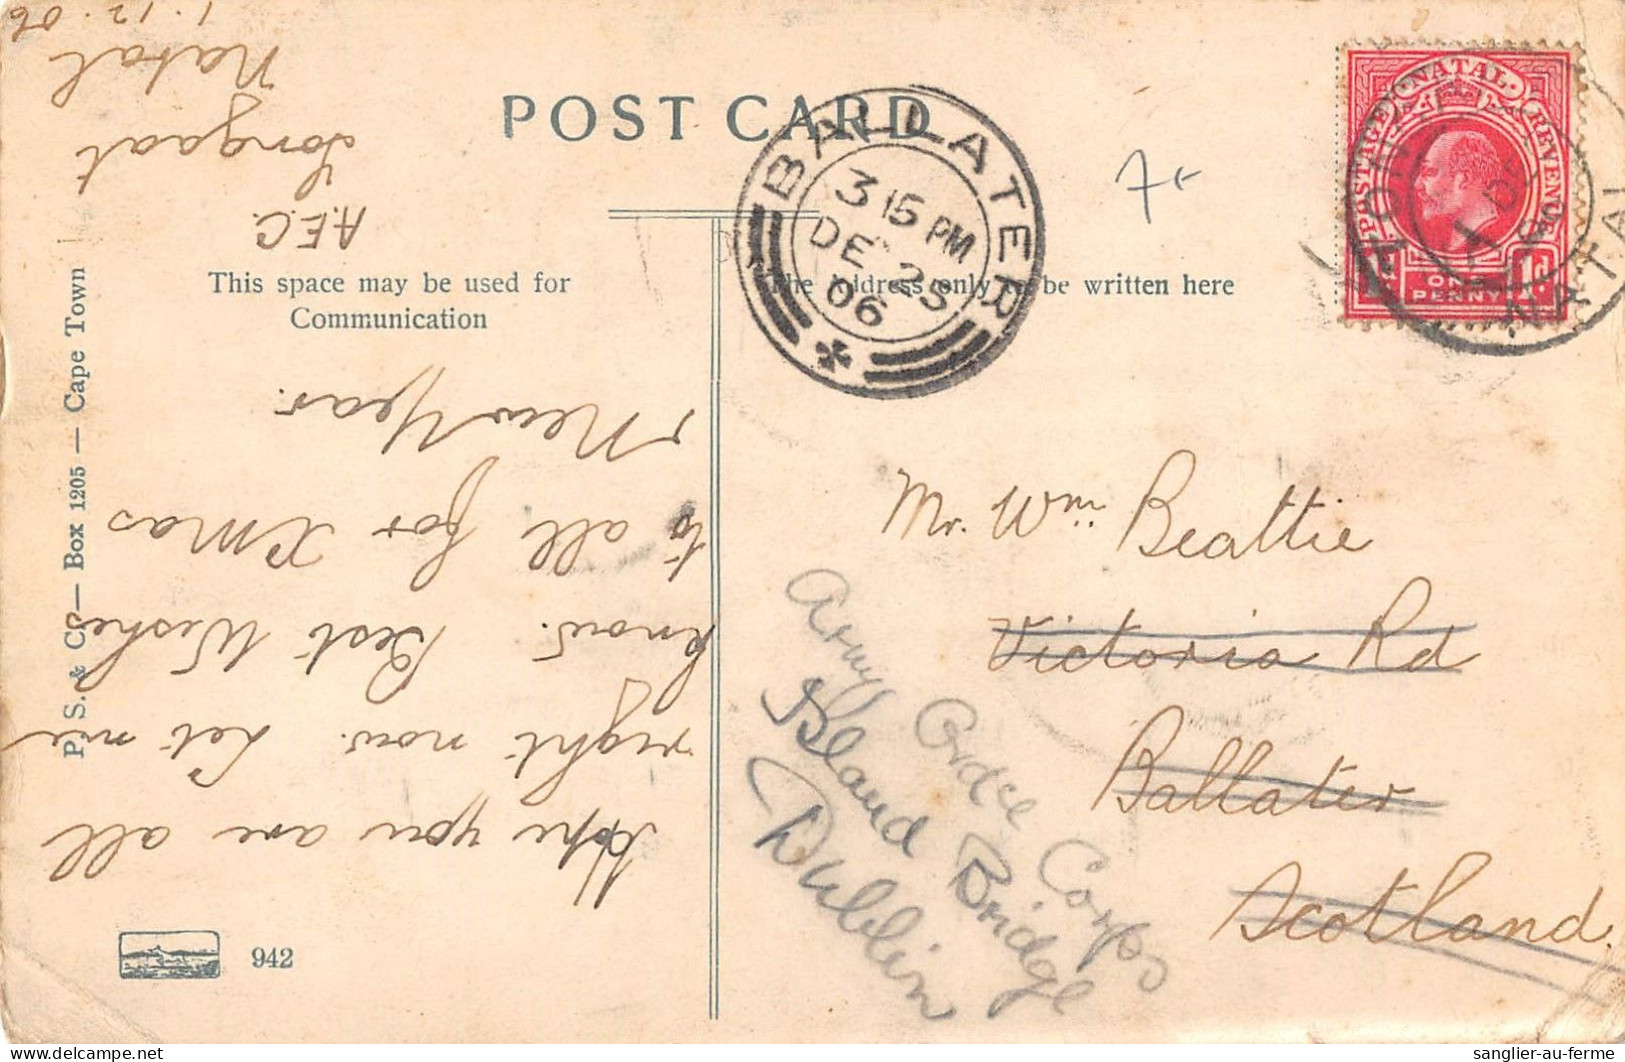 POST CARD
This space may be used for
Communication
The Address only to be written here
P. S. & Co — Box 1205 — Cape Town
942
BALLATER
3 15 PM
DE 25
06
NATAL
POSTAGE
REVENUE
1d
ONE
PENNY
1d.
NATAL
Mr. Wm Beattie
Victoria Rd
Ballater
Scotland.
Army Ordce Corps
Island Bridge
Dublin
Hope you are all
right now. Let me
know. Best Wishes
to all for Xmas
New Year.
A.E.C.
Tongaat
Natal
1.12.06
sanglier-au-ferme